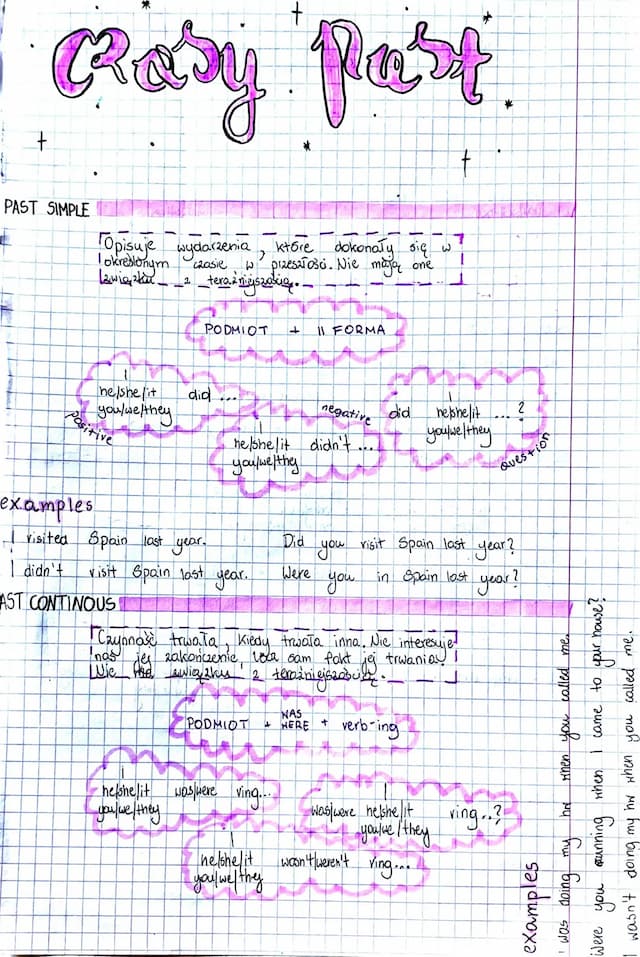 crazy Past
PAST SIMPLE
Opisuje wydarzenia, które dokonały się w
określonym czasie w przeszłości. Nie mają one
związku z teraźniejszością.
PODMIOT + II FORMA
I
he/she/it did ...
you/we/they
positive
negative
I
he/she/it didn't ...
you/we/they
I
did he/she/it ... ?
you/we/they
question
examples
I visited Spain last year.
Did you visit Spain last year?
I didn't visit Spain last year.
Were you in Spain last year?
AST CONTINOUS
Czynność trwała, kiedy trwała inna. Nie interesuje
nas jej zakończenie, sam fakt jej trwania.
Nie związku z teraźniejszością.
PODMIOT + WAS
WERE + verb-ing
I
he/she/it was/were ring...
you/we/they
I
was/were he/she/it ring..?
you/we/they
I
he/she/it wasn't/weren't ring...
you/we/they
examples
I was doing my hw when you called me.
Were you running when I came to your house?
I wasn't doing my hw when you called me.